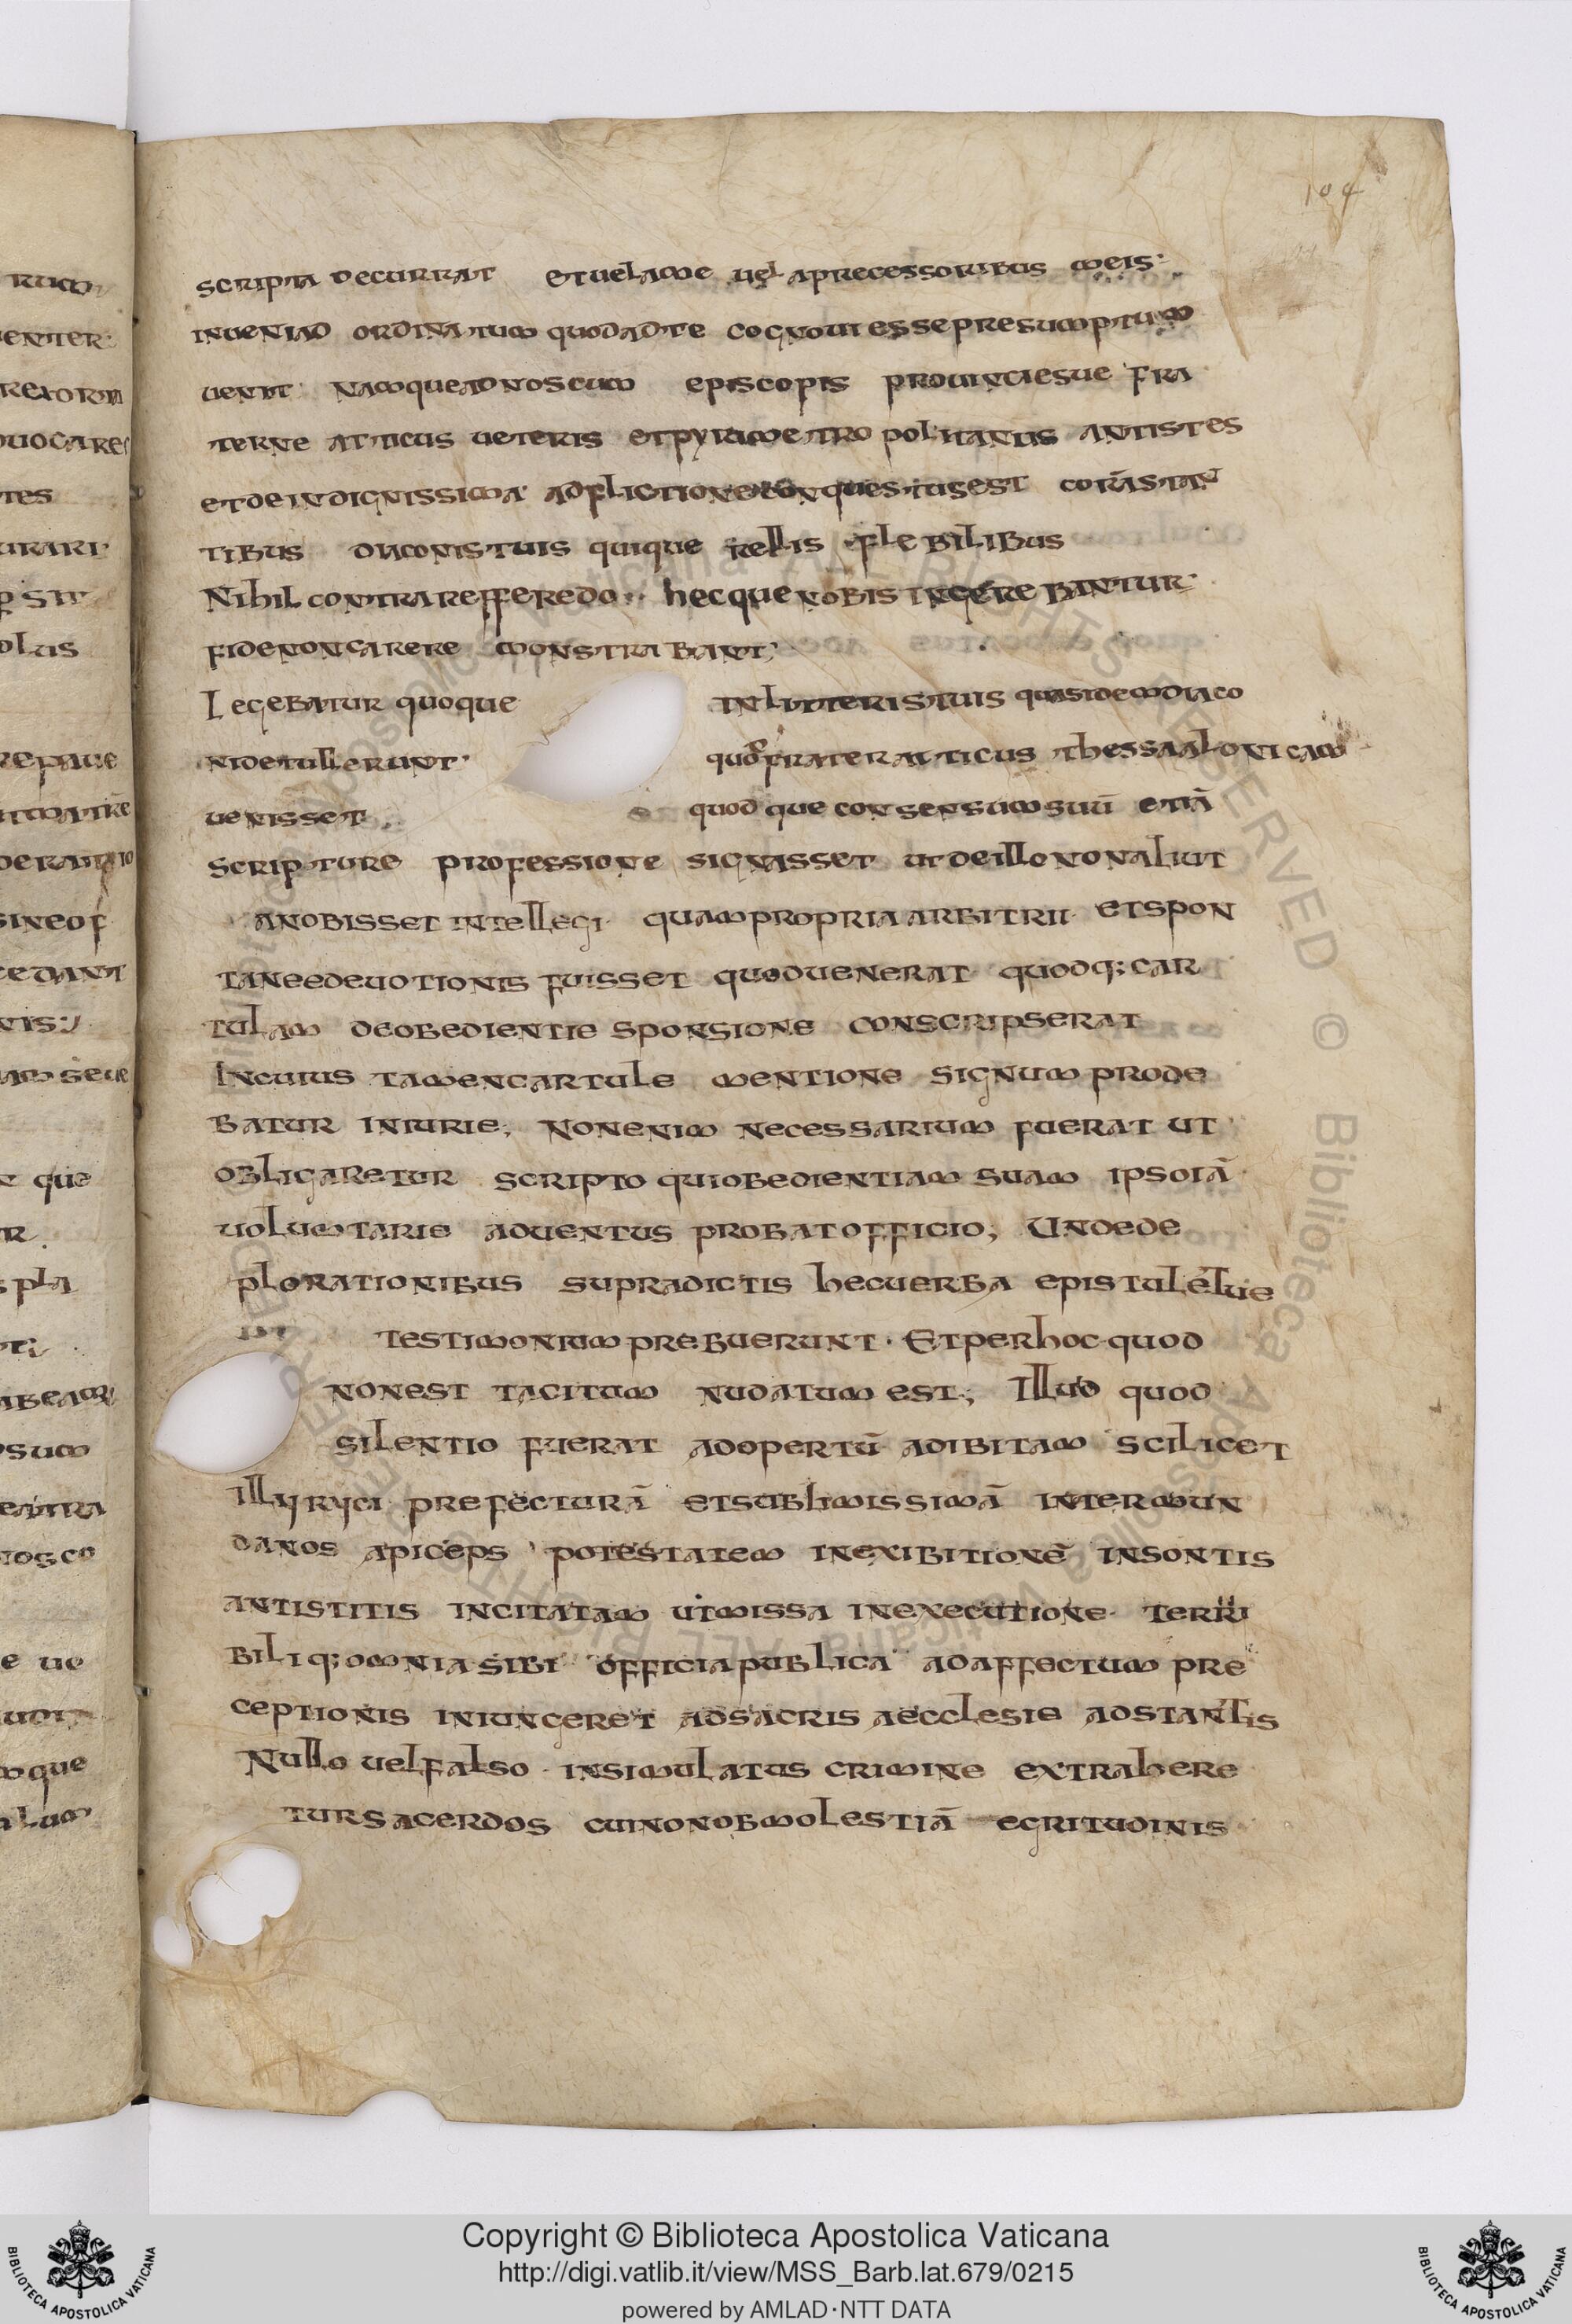 104
scripta decurrat et uel a me uel a precessoribus meis
inueniad ordinatum quod ad te cognoui esse presumptum
uenit namque ad nos cum episcopis prouincie sue fra
terne atticus ueteris et pyri metropolitanus antistes
et de indignissima adflictione conquestus est corā stan
tibus diaconis tuis quique rellis flebilibus
Nihil contra refferedo hecque nobis ingerebantur
fide non carere monstrabant;
Legebatur quoque in litteris tuis quas idem diaco
ni detullerunt quo frater atticus thessaalonicam
uenisset quodque consensum suū etiā
scripture professione signasset ut de illo non aliut
a nobisset intellegi quam propria arbitrii et spon
tanee deuotionis fuisset quo duenerat quodq; car
tulam de obedientie sponsione conscripserat
In cuius tamen cartule mentione signum prode
batur iniurie; non enim necessarium fuerat ut
obligaretur scripto qui obedientiam suam ipso iā
uolumtarie aduentus probat officio; Unde de
plorationibus supradictis hec uerba epistule tue
testimonium prebuerunt. Et per hoc quod
non est tacitum nudatum est; Illud quod
silentio fuerat adopertū adibitam scilicet
Illyryci prefecturā et sublimissimā inter mun
danos apiceps potestatem in exibitionē insontis
antistitis incitatam ut missa in executione terri
biliq; omnia sibi officia publica ad affectum pre
ceptionis iniungeret ad sacris aecclesie adstantis
Nullo uel falso insimulatus crimine extrahere
tur sacerdos cui non ob molestiā egritudinis
Copyright © Biblioteca Apostolica Vaticana
http://digi.vatlib.it/view/MSS_Barb.lat.679/0215
powered by AMLAD·NTT DATA